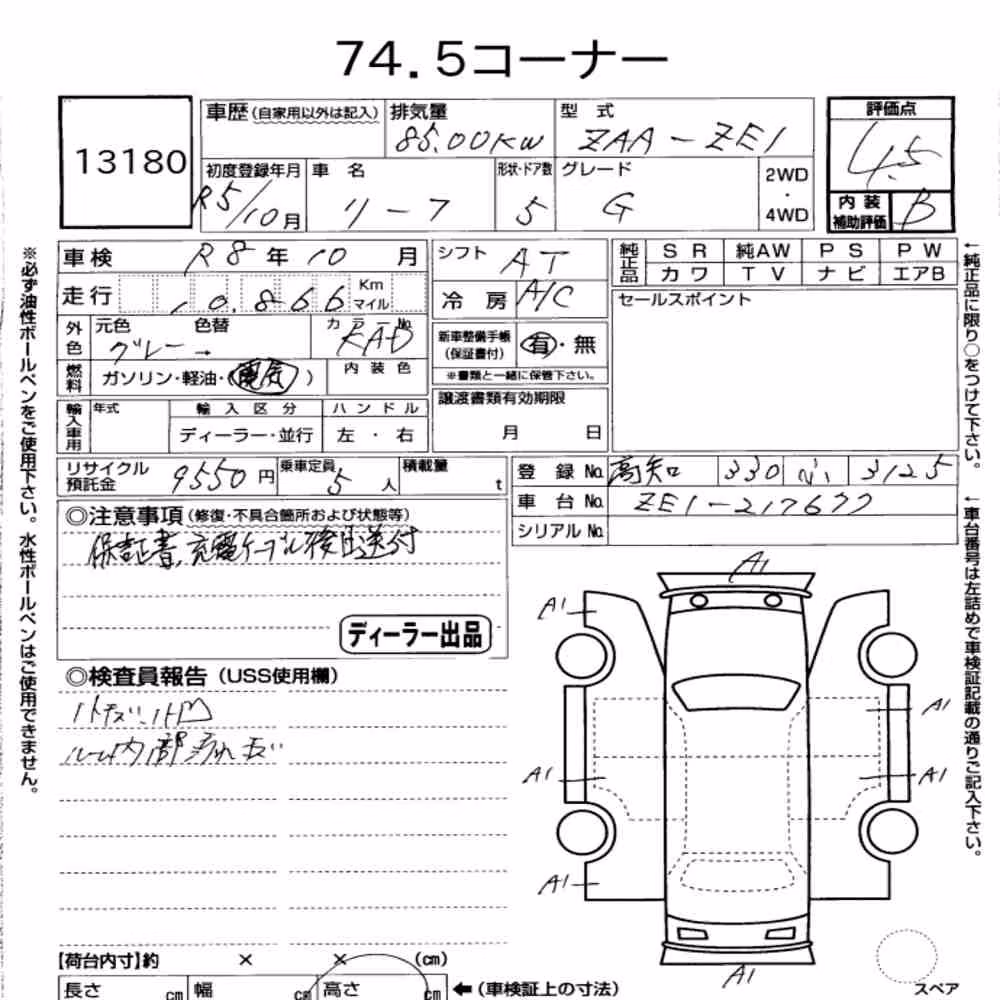 74.5コーナー
13180
車歴 (自家用以外は記入) 排気量 型式 評価点
85.00KW ZAA-ZE1 4.5
初度登録年月 車名 形状・ドア数 グレード 2WD・4WD
R5/10月 リーフ 5 G
内装補助評価 B
車検 R8年10月 シフト AT
純正品 SR 純AW PS PW
カワ TV ナビ エアB
走行 10,866 Km マイル 冷房 A/C
セールスポイント
外色 元色 色替 カラーNo.
グレー → KAD
新車整備手帳(保証書付) 有・無
※書類と一緒に保管下さい。
燃料 ガソリン・軽油・(電気) 内装色
譲渡書類有効期限
月 日
輸入車用 年式 輸入区分 ハンドル
ディーラー・並行 左・右
リサイクル預託金 9550円 乗車定員 5人 積載量 t
登録No. 高知 330 3125
車台No. ZE1-217677
シリアルNo.
◎注意事項(修復・不具合箇所および状態等)
保証書、充電ケーブル後日送付
ディーラー出品
◎検査員報告(USS使用欄)
ルーム内部汚れ
A1
A1
A1
A1
A1
A1
A1
【荷台内寸】約 × × (cm)
長さ cm 幅 cm 高さ cm ←(車検証上の寸法)
スペア
※必ず油性ボールペンをご使用下さい。水性ボールペンはご使用できません。
←純正品に限り○をつけて下さい。
←車台番号は左詰めで車検証記載の通りご記入下さい。